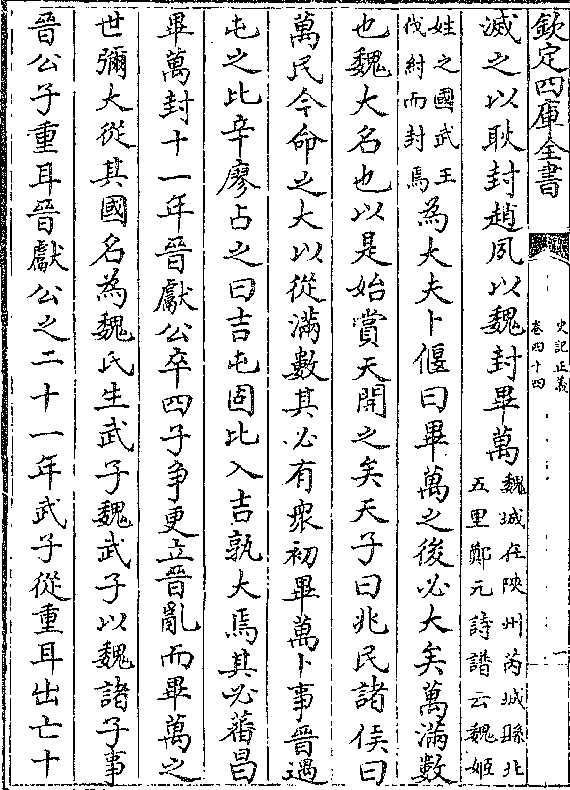 欽定四庫全書
史記正義
卷四十四
一
滅之以耿封趙夙以魏封畢萬魏城在陜州芮城縣北五里鄭元詩譜云魏姬
姓之國武王伐紂而封焉為大夫卜偃曰畢萬之後必大矣萬滿數
也魏大名也以是始賞天開之矣天子曰兆民諸侯曰
萬民今命之大以從滿數其必有衆初畢萬卜事晉遇
屯之比辛廖占之曰吉屯固比入吉孰大焉其必蕃昌
畢萬封十一年晉獻公卒四子爭更立晉亂而畢萬之
世彌大從其國名為魏氏生武子魏武子以魏諸子事
晉公子重耳晉獻公之二十一年武子從重耳出亡十